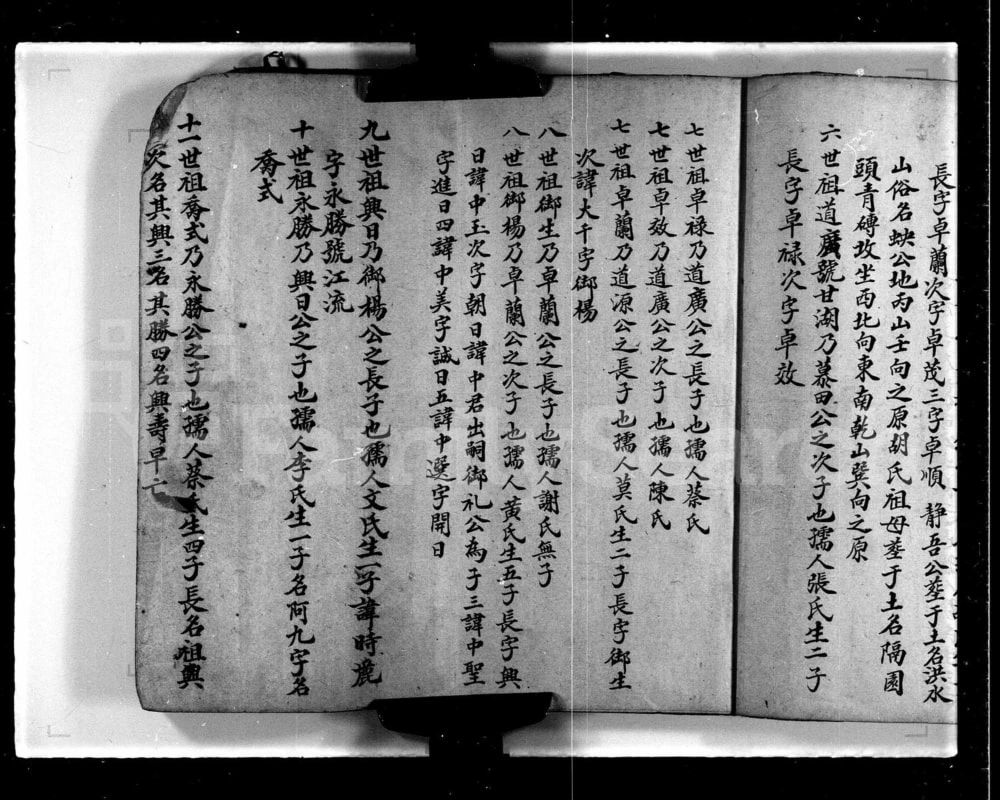 長字卓蘭次字卓茂三字卓順 靜吾公塟于土名洪水
山俗名蚺公地丙山壬向之原胡氏祖母塟于土名隔園
頭青磚坟坐西北向東南乾山巽向之原
六世祖道廣號甘湖乃慕田公之次子也孺人張氏生二子
長字卓禄次字卓效
七世祖卓禄乃道廣公之長子也孺人蔡氏
七世祖卓效乃道廣公之次子也孺人陳氏
七世祖卓蘭乃道源公之長子也孺人莫氏生二子長字御生
次諱大千字御楊
八世祖御生乃卓蘭公之長子也孺人謝氏無子
八世祖御楊乃卓蘭公之次子也孺人黄氏生五子長字興
日諱中玉次字朝日諱中君出嗣御礼公為子三諱中聖
字進日四諱中美字誠日五諱中選字開日
九世祖興日乃御楊公之長子也孺人文氏生一子諱時麂
字永勝號江流
十世祖永勝乃興日公之子也孺人李氏生一子名阿九字名
喬式
十一世祖喬式乃永勝公之子也孺人蔡氏生四子長名祖興
次名其興三名其勝四名興壽早亡